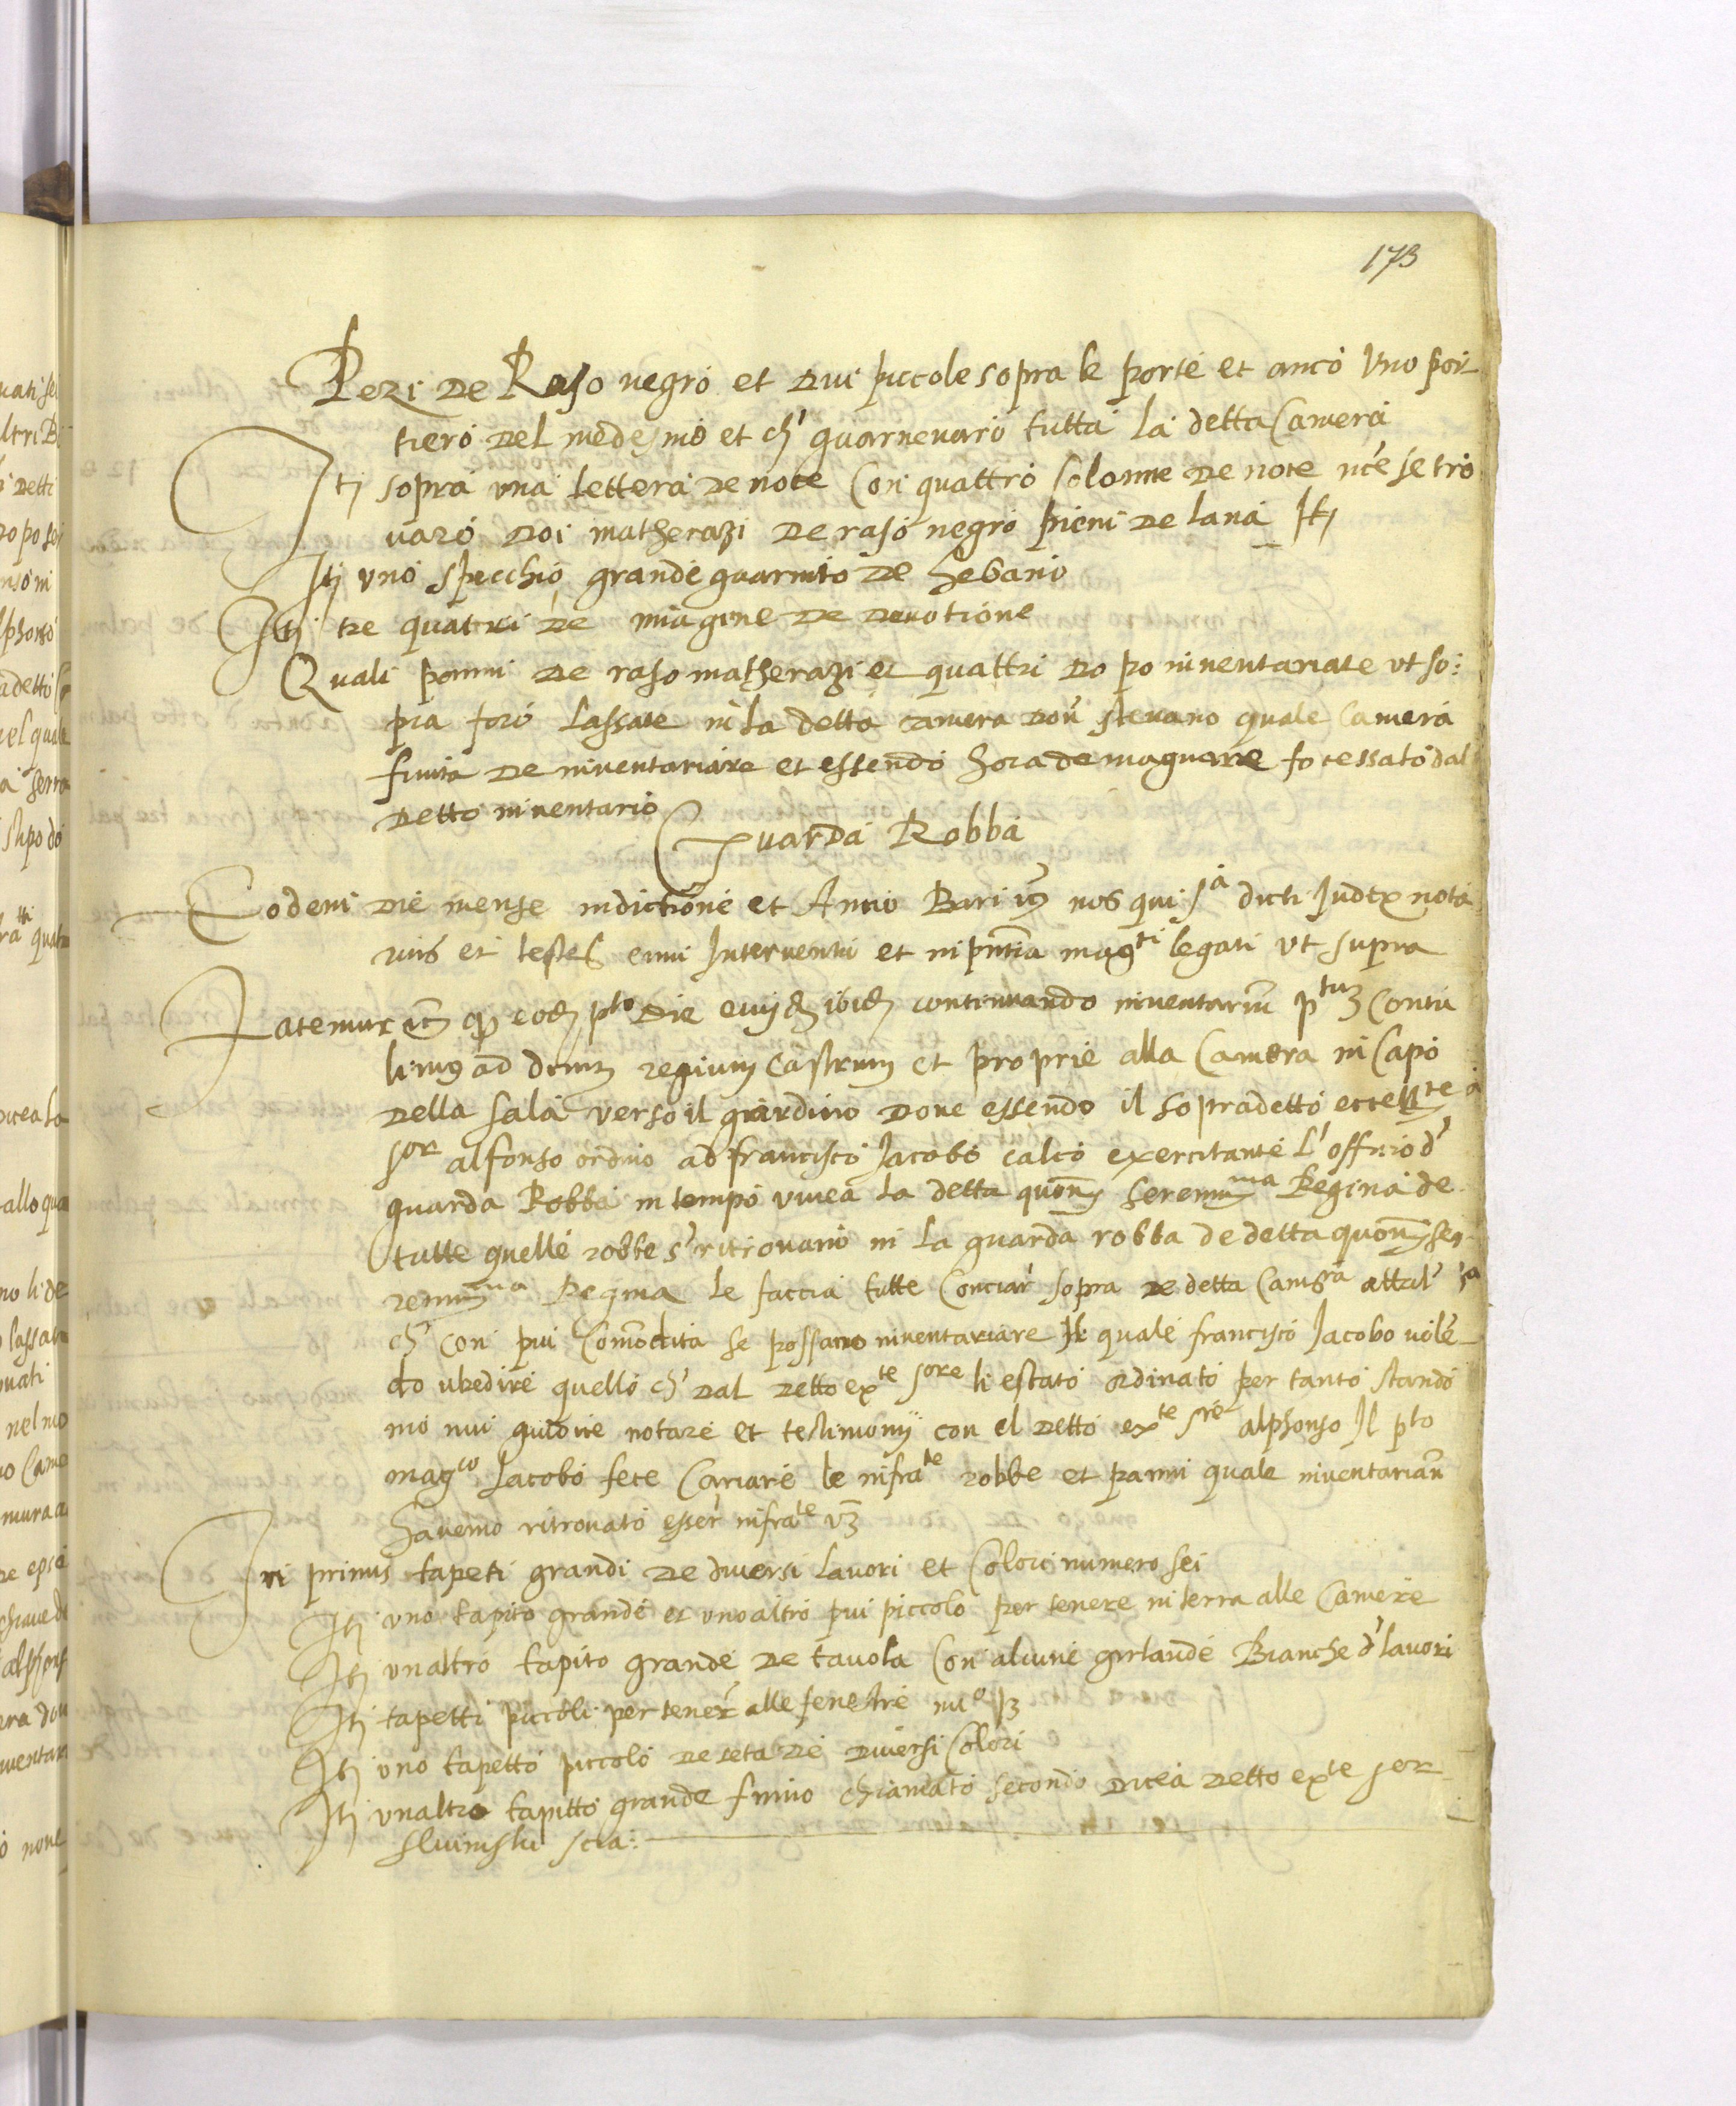 173
Pezi de Raso negro et dui piccole sopra le porte et anco uno por
tiero del medesmo et ch' guarnevaro tutta la detta Camera
Itj sopra una lettera de noce Con quattro Colonne de noce nce se tro
varo doi matherazi de raso negro pieni de lana Itj
Itj uno specchio grande guarnito de hebano
Itj tre quatri de miagine de devotione
Quali panni de raso matherazi et quattri dopo inventariate ut so:
pra foro lassate in la detta camera dov' stevano quale Camera
finita de inventariare et essendo hora de magnare fo cessato dal
detto inventario
Guarda Robba
Eodem die mense indictione et Anno Bari etc nos qui s.a dicti Judex nota
rius et testes cum Interventu et in pntia mag.ti legati ut supra
Fatemur etc qd eod pto die euijsd ibid continuando inventariu p.tuz Contu
limus ad dittum regium Castrum et proprie alla Camera in Capo
della sala verso il giardino dove essendo il sopradetto eccell.te
s.or alfonso ordino ad francisco Jacobo calco exercitante l'officio d'
guarda Robba in tempo vivea la detta quon Serenis.ma Regina de
tutte quelle robbe s' ritrovano in la guarda robba de detta quon Se
renis.ma Regina le faccia tutte Conciar' sopra de detta Cam.ra attal'
ch' con piu Commodita se possano inventariare Il quale francisco Jacobo vole
do ubedire quello ch' dal detto ex.te s.ore li e stato ordinato per tanto stando
mo nui iudice notare et testimonij con el detto ex.te s.re alphonso Il p.to
mag.co Jacobo fece Cariare le infra.te robbe et panni quale inventarian
havemo ritrovato esser' infra.te vz
In primis tapeti grandi de diversi lavori et Colori numero sei
Itj uno tapito grande et uno altro piu piccolo per tenere in terra alle Camere
Itj unaltro tapito grande de tavola Con alcune girlande Bianche d' lavori
Itj tapetti piccoli per tener' alle fenestre nu.o
Itj uno tapetto piccolo de seta de diversi Colori
Itj unaltro tapitto grande finino chiamato secondo dicea detto ex.te s.or